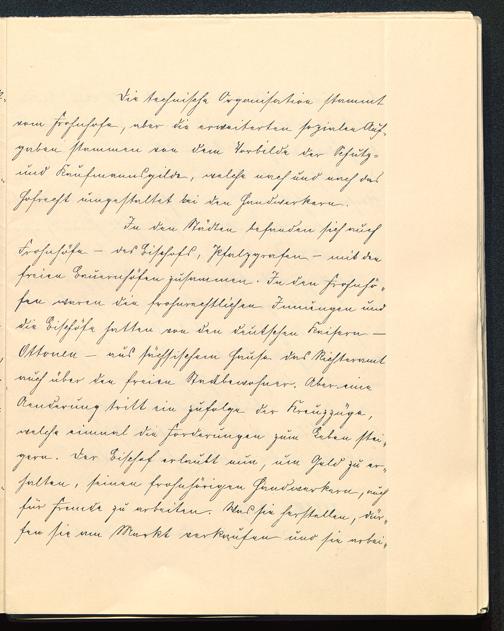 Die technische Organisation stammt
vom Frohnhofe, aber die erweiterten sozialen Auf-
gaben stammen von dem Vorbilde der Schutz-
und Kaufmannsgilde, welche nach und nach das
Hofrecht umgestaltet bei den Handwerkern.
In den Städten befanden sich auch
Frohnhöfe – des Bischofs, Pfalzgrafen – mit den
freien Bauernhöfen zusammen. In den Frohnhö-
fen waren die frohnrechtlichen Innungen und
die Bischöfe hatten von den deutschen Kaisern –
Ottonen – aus sächsischem Hause das Richteramt
auch über die freien Stadtbewohner. Aber eine
Aenderung tritt ein zufolge der Kreuzzüge,
welche einmal die Forderungen zum Leben stei-
gern. Der Bischof erlaubt nun, um Geld zu er-
halten, seinen frohnhörigen Handwerkern, auch
für Fremde zu arbeiten. Was sie herstellen, dür-
fen sie am Markt verkaufen und sie arbei-